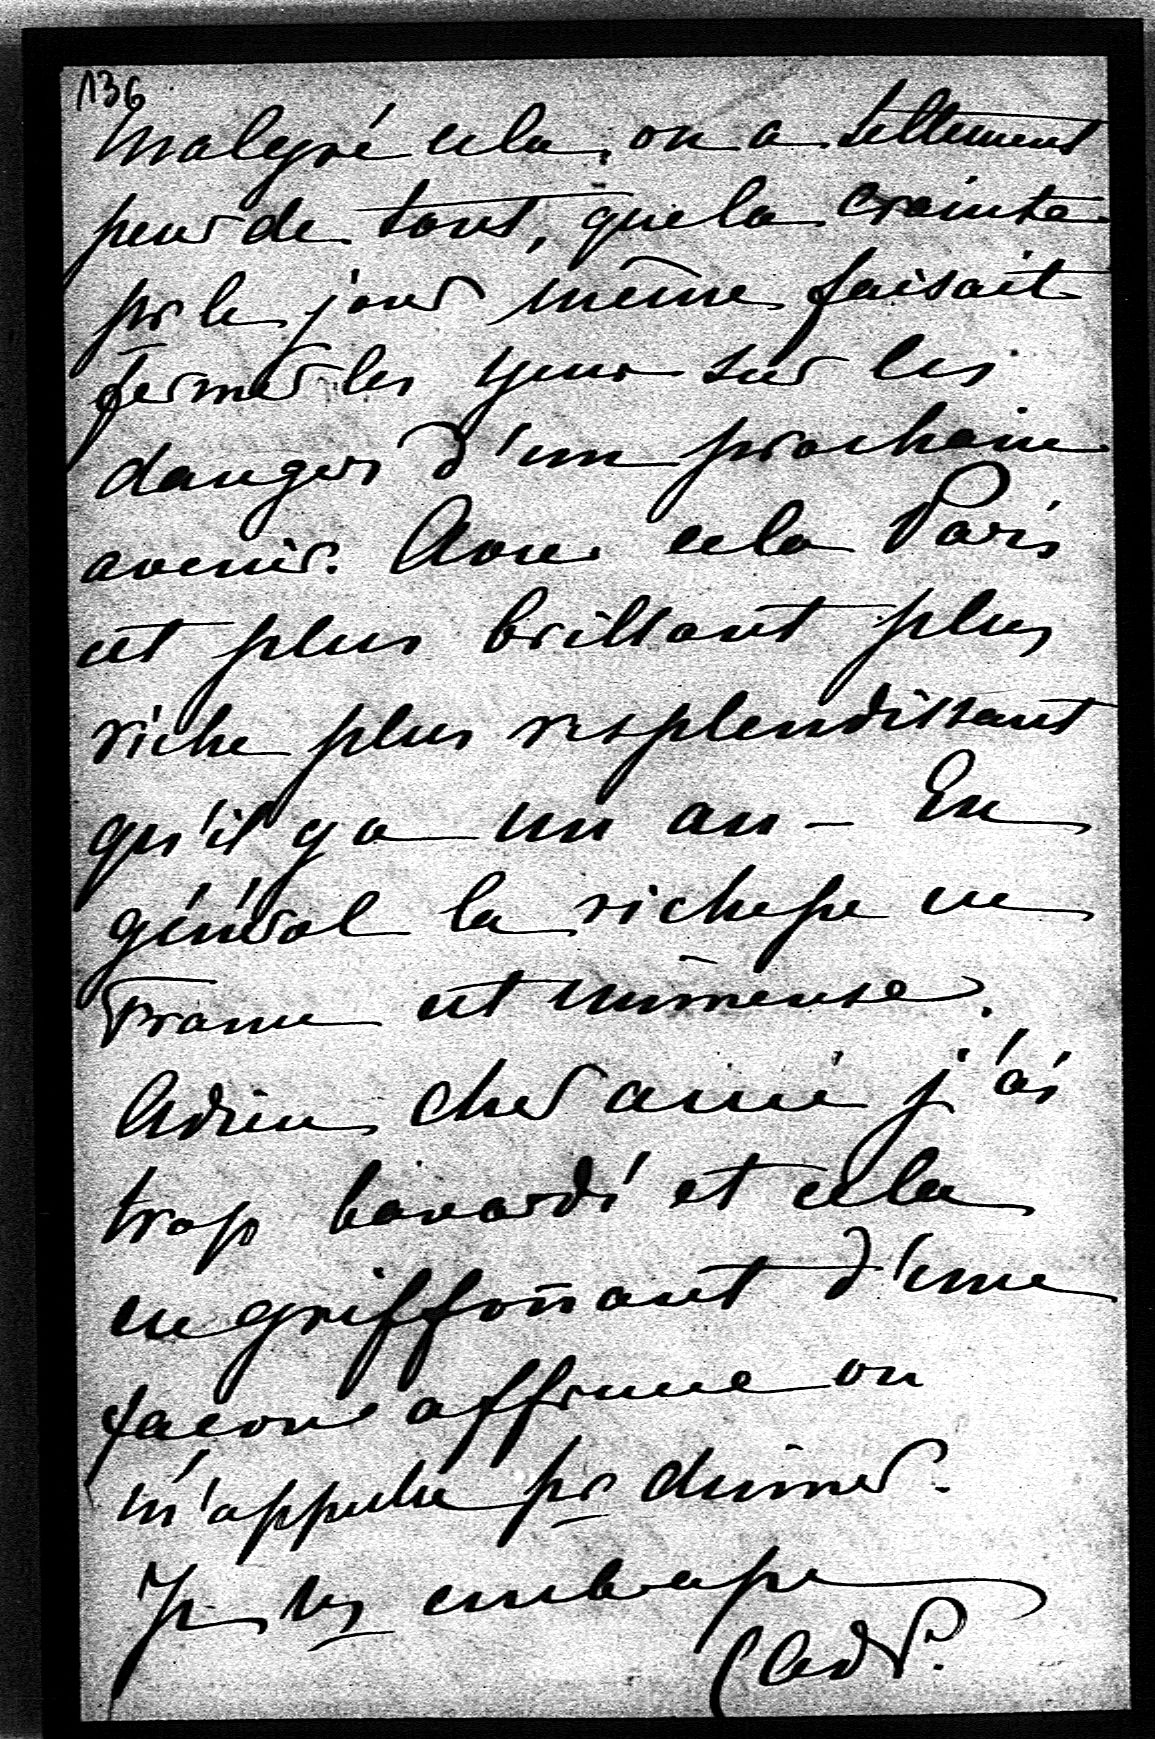 136
Malgré cela, on a tellement
peur de tout, que la crainte
pr le jour même faisait
fermer les yeux sur les
dangers d'un prochain
avenir. Avec cela Paris
est plus brillant plus
riche plus resplendissant
qu'il y a un an – En
général la richesse en
France est immense.
Adieu cher ami j'ai
trop bavardé et cela
en griffonant d'une
façon affreuse on
m'appelle pr diner.
Je vs embrasse